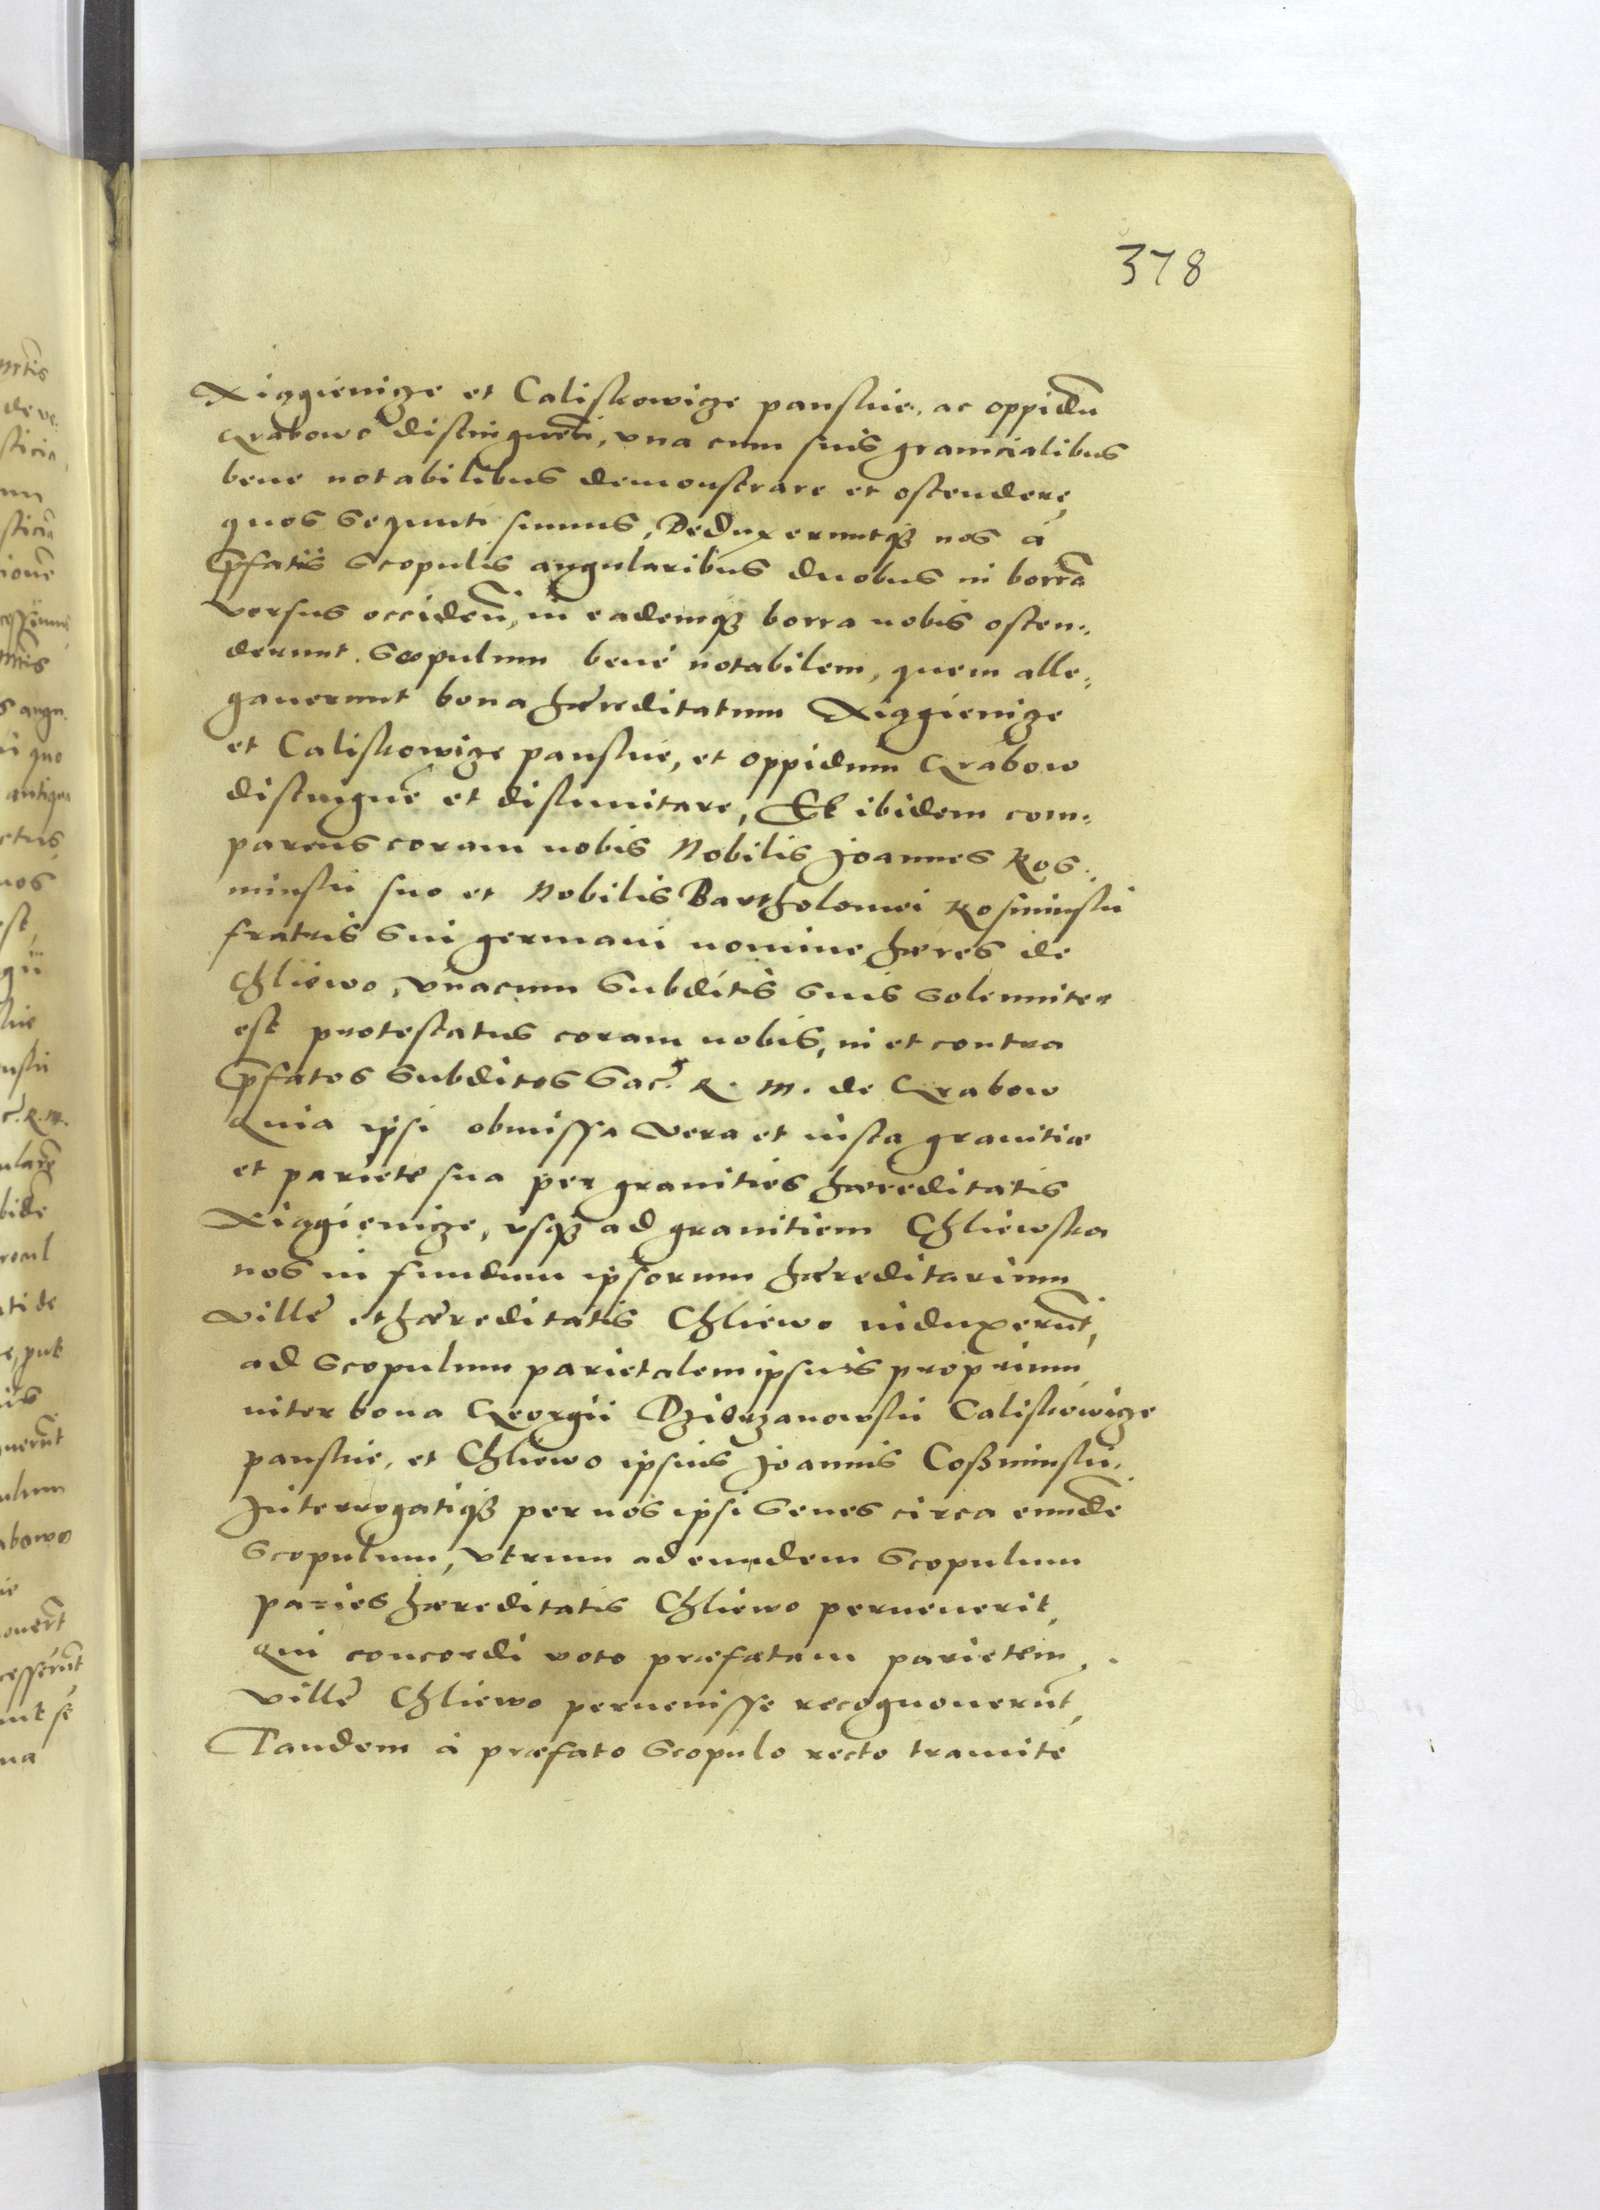 378
Xiągienicze et Caliskowicze panskie, ac oppidū
Grabowo distinguen̄, vna cum suis granicialibus
bene notabilibus demonstrare et ostendere,
quos sequuti sumus, Deduxeruntqȝ nos à
p̄fatis scopulis angularibus duobus in borra
versus occiden̄, in eademqȝ borra nobis osten,,
derunt scopulum bene notabilem, quem alle,,
gauerunt bona hæreditatum Xiągienicze
et Caliskowicze panskie, et oppidum Grabow
distingue͂ et dislimitare, Et ibidem com,,
parens coram nobis Nobilis Joannes Kos,,
minskii suo et Nobilis Bartholomei Kosminskii
fratris sui germani nomine hæres de
Chliewo, vnacum subditis suis solenniter
est protestatus coram nobis, in et contra
p̄fatos subditos Sac. R. M. de Grabow
Quia ipsi obmissa vera et iusta granitiæ
et pariete sua per granities hæreditatis
Xiągienicze, vsqȝ ad granitiem Chliewska
nos in fundum ipsorum hæreditarium
villę et hæreditatis Chliewo induxerūt,
ad scopulum parietalem ipsius proprium
inter bona Georgii Dzierzanowskii Caliskowicze
panskie, et Chliewo ipsius Joannis Coßminskii.
Interrogatiqȝ per nos ipsi senes circa eundē
scopulum, vtrum ad eundem scopulum
paries hæreditatis Chliewo peruenerit,
Qui concordi voto præfatam parietem
villę Chliewo peruenisse recognouerūt,
Tandem à præfato scopulo recto tramite